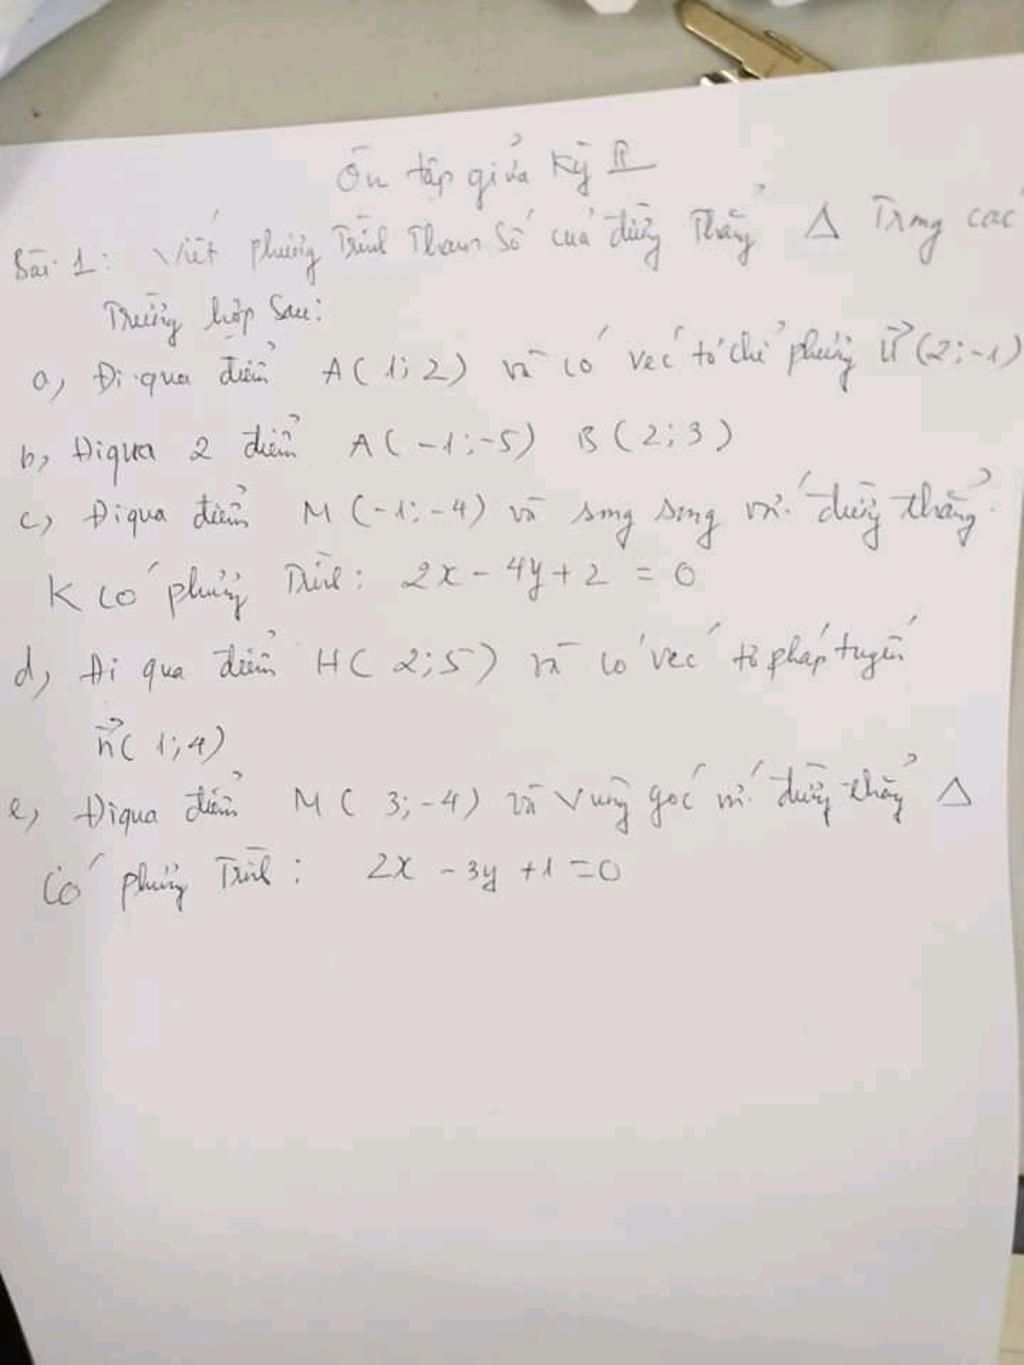 Ôn tập giữa kỳ II
Bài 1: Viết phương Trình Tham Số của đường Thẳng Δ Trong các
Trường hợp sau:
a, Đi qua điểm A(1;2) và có vec tơ chỉ phương u⃗(2;-1)
b, Đi qua 2 điểm A(-1;-5) B(2;3)
c, Đi qua điểm M(-1;-4) và song song với đường thẳng
K có phương Trình: 2x-4y+2=0
d, Đi qua điểm H(2;5) và có vec tơ pháp tuyến
n⃗(1;4)
e, Đi qua điểm M(3;-4) và Vuông góc với đường thẳng Δ
có phương Trình: 2x-3y+1=0